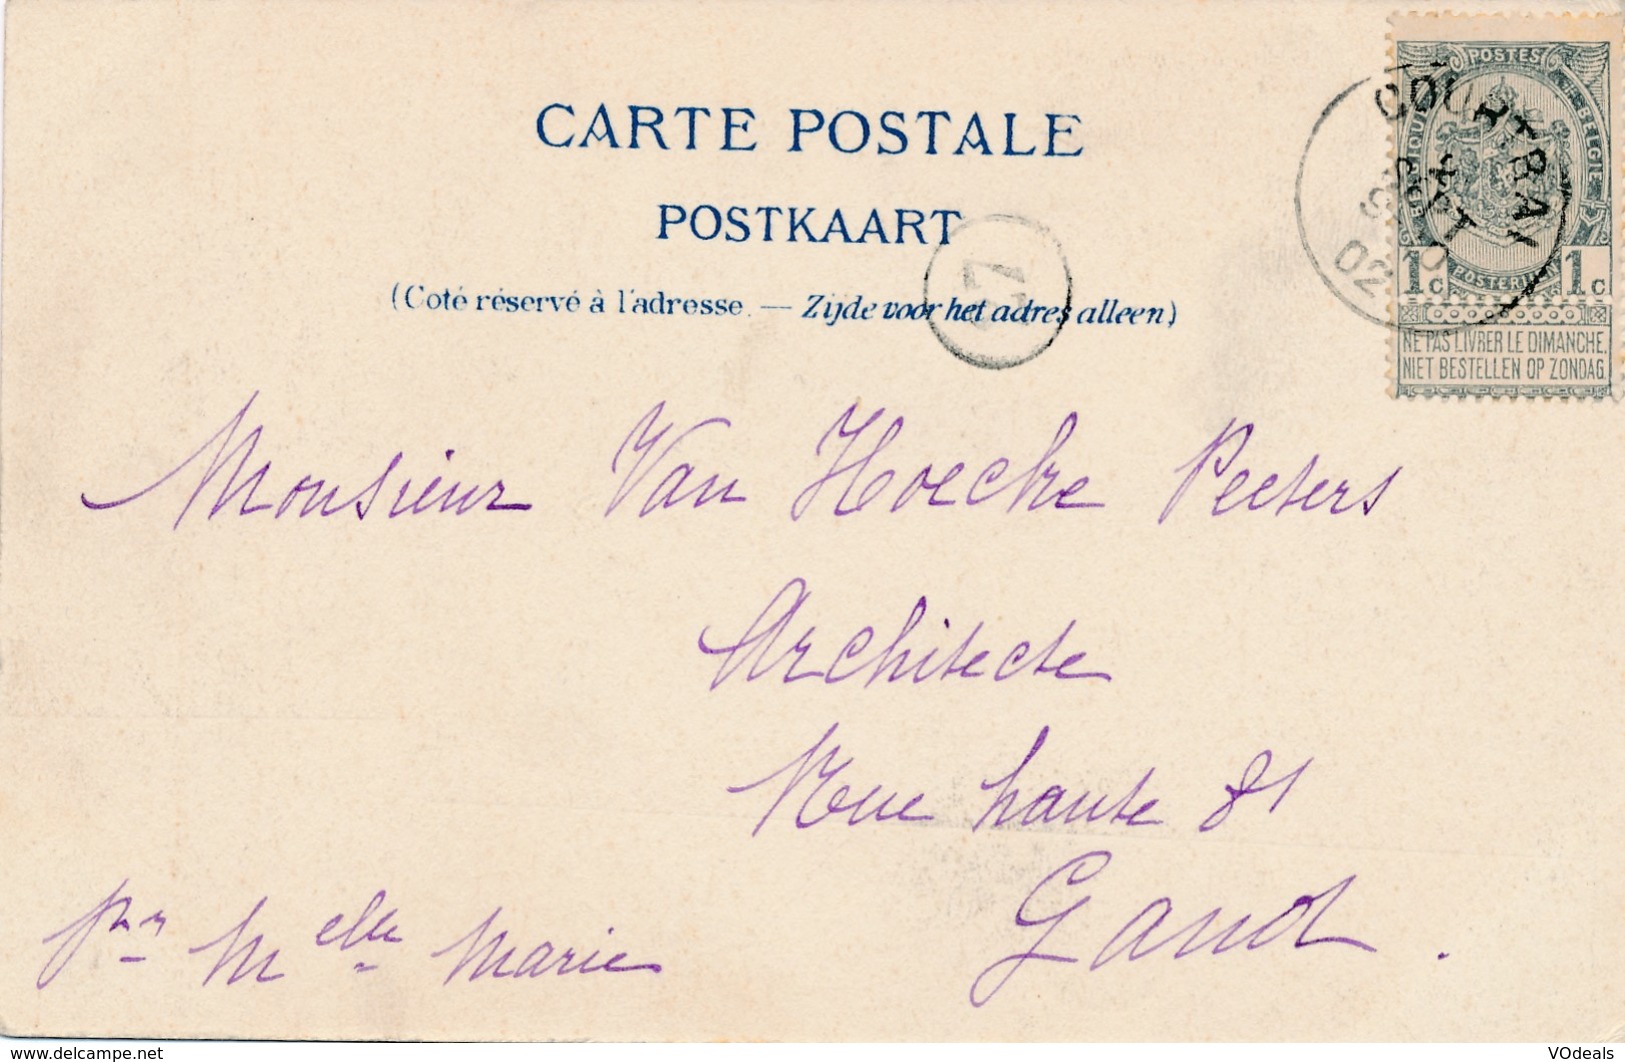 CARTE POSTALE
POSTKAART
(Coté réservé à l'adresse. — Zijde voor het adres alleen)
POSTES
BELGIQUE
BELGIE
POSTERIJEN
1c 1c
NE PAS LIVRER LE DIMANCHE.
NIET BESTELLEN OP ZONDAG.
COURTRAY
SEPT
02
47
Monsieur Van Hoecke Peeters
Architecte
Rue haute 81
Gand.
Pr Melle Marie
www.delcampe.net
VOdeals